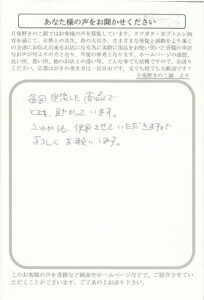 あなたの声をお聞かせください
月夜野きのこ園ではお客様の声を募集しています。クワガタ・カブトムシ飼
育を通じて、自然との共生、命の大切さ、さまざまな発見と感動をより多く
の方達にお伝え出来るお店になる為に実際に用品をお使い頂いた皆様の率直
なお声が何よりの力となり、今後の参考となります。ホームページの感想、
良い所、悪い所、他のお店との違い等、どんな事でも結構ですので、お送り
ください。応募はがきの裏書きは一切自由です。文でも絵でも大歓迎です！
月夜野きのこ園 より
毎回安定した商品で
とても、助かっています。
これからも、使用させていただきますので
よろしくお願いします。
このお客様の声を書籍など紙面やホームページなどで、ご紹介させてい
ただくことがございます。ご了承の上お送り下さい。